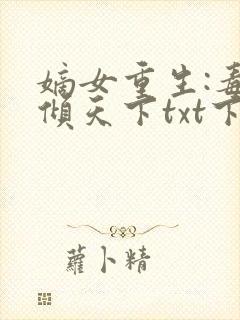 嫡女重生:毒
倾天下txt下
蘿卜精